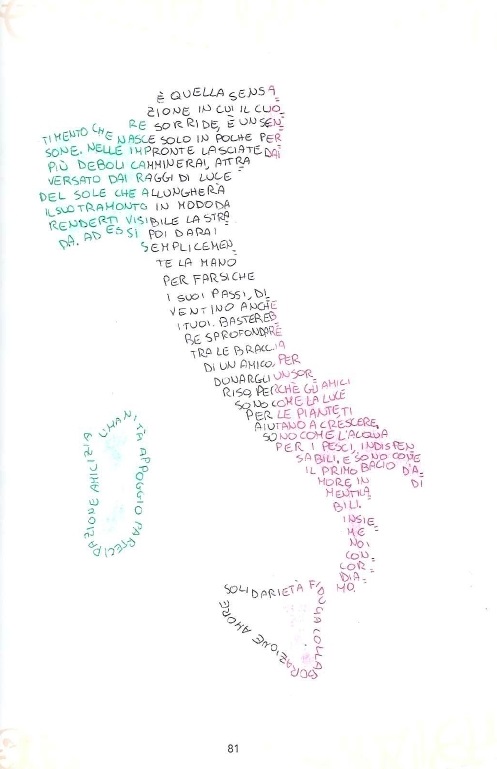 È QUELLA SENSA=
ZIONE IN CUI IL CUO=
RE SORRIDE, È UN SEN=
TIMENTO CHE NASCE SOLO IN POCHE PER=
SONE. NELLE IMPRONTE LASCIATE DAI
PIÙ DEBOLI CAMMINERAI, ATTRA=
VERSATO DAI RAGGI DI LUCE
DEL SOLE CHE ALLUNGHERÀ
IL SUO TRAMONTO IN MODO DA
RENDERTI VISIBILE LA STRA=
DA. AD ESSI POI DARAI
SEMPLICEMEN=
TE LA MANO
PER FAR SI CHE
I SUOI PASSI, DI=
VENTINO ANCHE
I TUOI. BASTEREB=
BE SPROFONDARE
TRA LE BRACCIA
DI UN AMICO, PER
DONARGLI UN SOR=
RISO, PERCHÈ GLI AMICI
SONO COME LA LUCE
PER LE PIANTE TI
AIUTANO A CRESCERE,
SONO COME L'ACQUA
PER I PESCI, INDISPEN=
SABILI. E SONO COME
IL PRIMO BACIO D'A=
MORE, INDI=
MENTICA=
BILI.
INSIE=
ME
NOI
CON=
COR=
DIA=
MO.
UMANITÀ APPOGGIO PARTECIPAZIONE AMICIZIA
SOLIDARIETÀ FIDUCIA COLLABORAZIONE AMORE
81